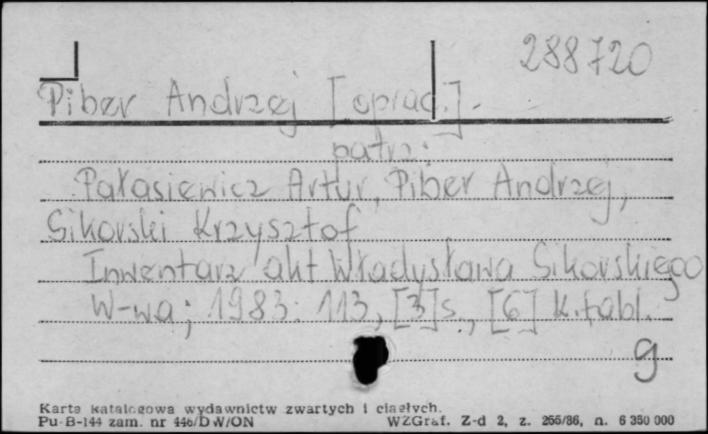 288720
Piber Andrzej [oprac.].
patrz:
Pałasiewicz Artur, Piber Andrzej,
Sikorski Krzysztof
Inwentarz akt Władysława Sikorskiego
W-wa; 1983. 113, [3]s., [6] k.tabl.
g
Karta katalogowa wydawnictw zwartych i ciągłych.
Pu-B-144 zam. nr 446/DW/ON WZGraf. Z-d 2, z. 266/86, n. 6 350 000